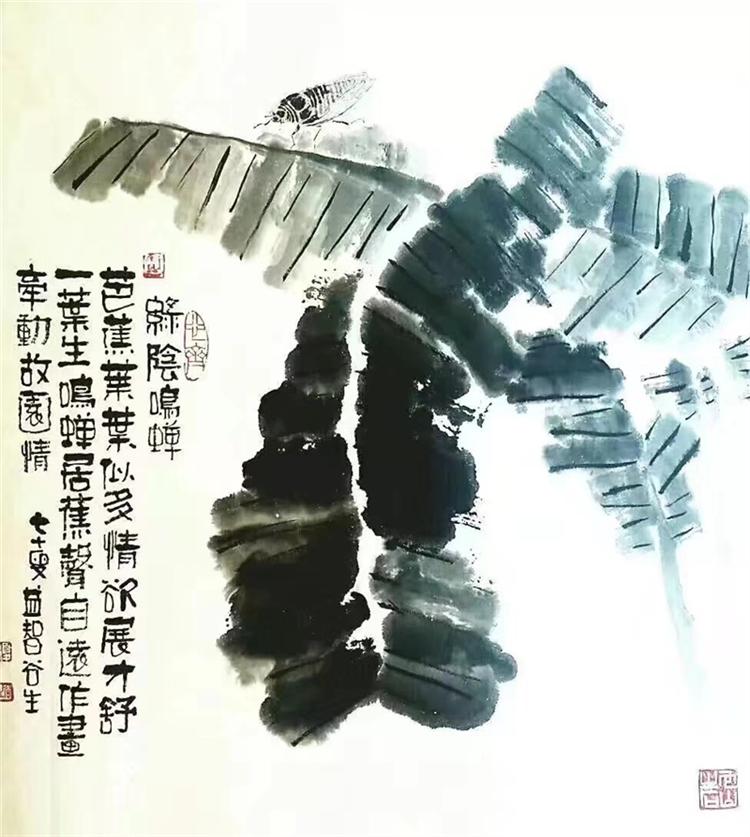 緑陰鳴蝉
芭蕉葉葉似多情欲展才舒
一葉生鳴蝉居蕉聲自遠作畫
牽動故園情
七十叟益智谷生